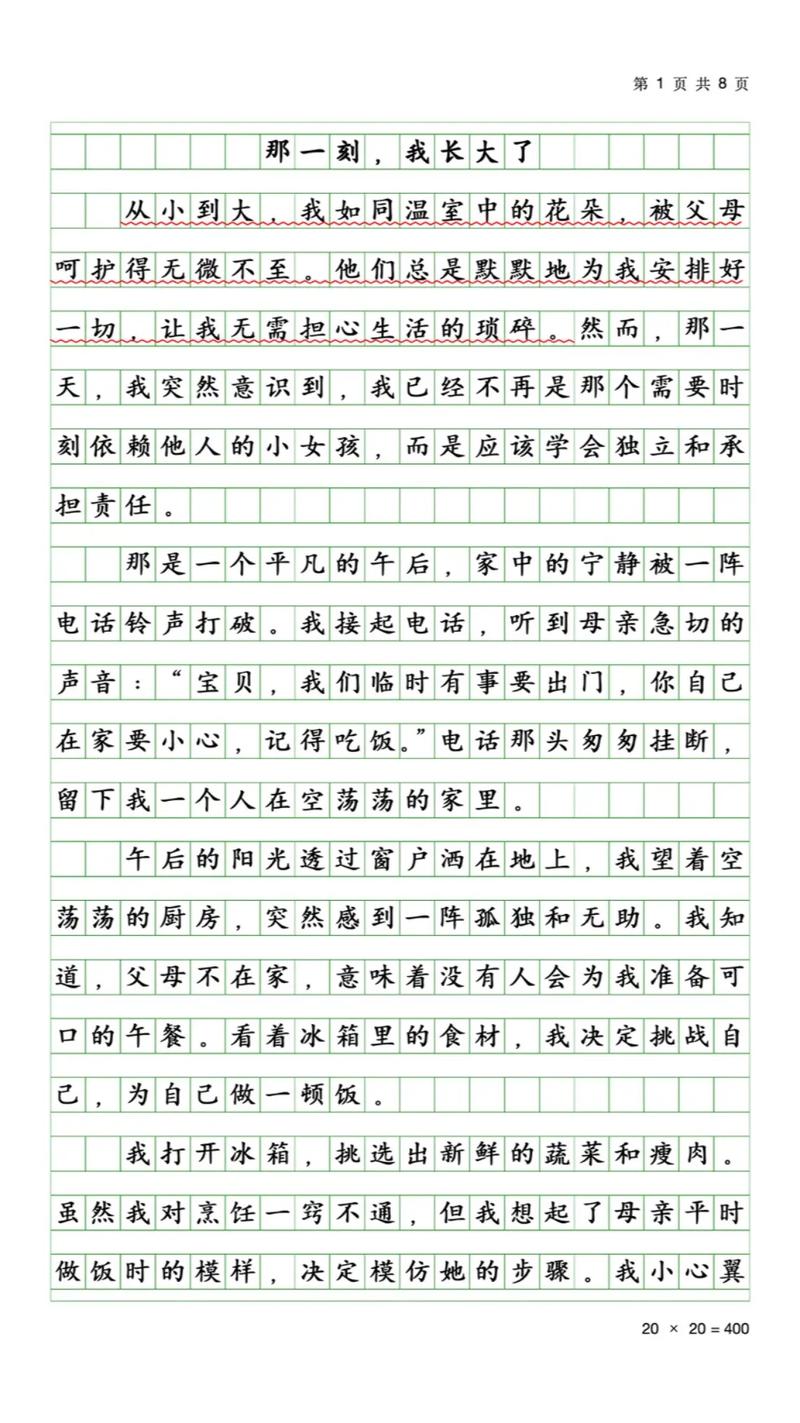 第 1 页 共 8 页
那一刻，我长大了
从小到大，我如同温室中的花朵，被父母
呵护得无微不至。他们总是默默地为我安排好
一切，让我无需担心生活的琐碎。然而，那一
天，我突然意识到，我已经不再是那个需要时
刻依赖他人的小女孩，而是应该学会独立和承
担责任。
那是一个平凡的午后，家中的宁静被一阵
电话铃声打破。我接起电话，听到母亲急切的
声音：“宝贝，我们临时有事要出门，你自己
在家要小心，记得吃饭。”电话那头匆匆挂断，
留下我一个人在空荡荡的家里。
午后的阳光透过窗户洒在地上，我望着空
荡荡的厨房，突然感到一阵孤独和无助。我知
道，父母不在家，意味着没有人会为我准备可
口的午餐。看着冰箱里的食材，我决定挑战自
己，为自己做一顿饭。
我打开冰箱，挑选出新鲜的蔬菜和瘦肉。
虽然我对烹饪一窍不通，但我想起了母亲平时
做饭时的模样，决定模仿她的步骤。我小心翼
20 × 20 = 400